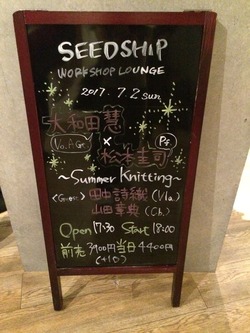 SEEDSHIP
WORKSHOP LOUNGE
2017. 7.2 sun
大和田慧
(Vo. A.Gt)
×
松本圭司
(Pf.)
~Summer Knitting~
<Guest> 田中詩織 (Vla.)
山田章典 (Cb.)
Open 17:30 Start 18:00
前売 3900円 当日 4400円
(+1D)